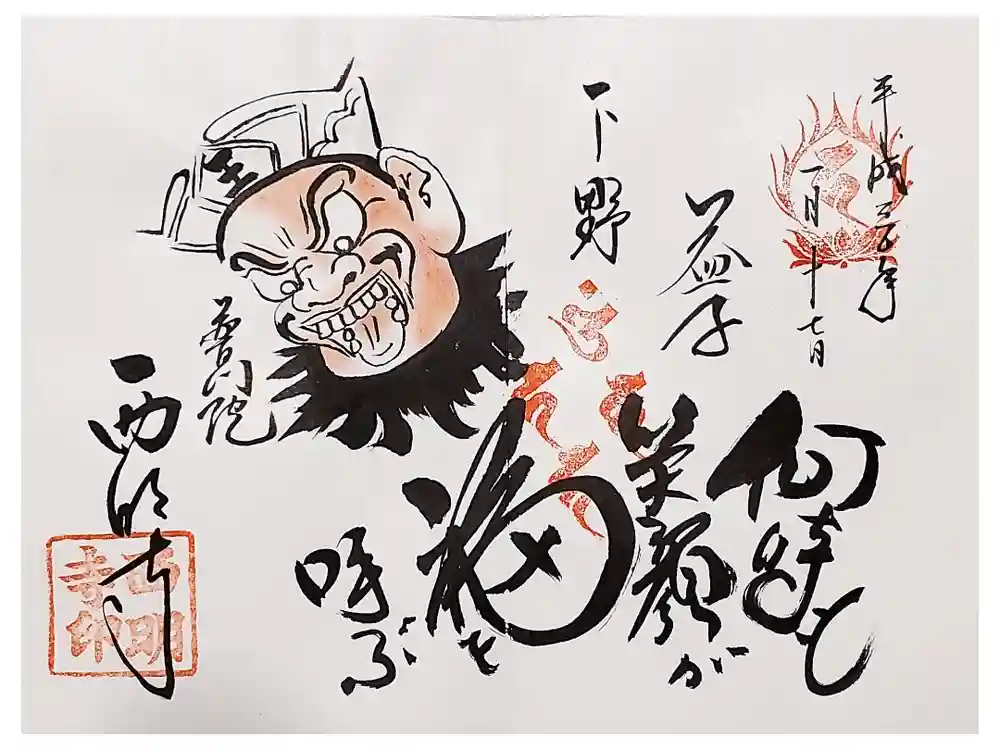 平成
年
一月十七日
下野
益子
何時も
笑顔が
福を
呼ぶ
王
普門院
西明寺
西明
寺印